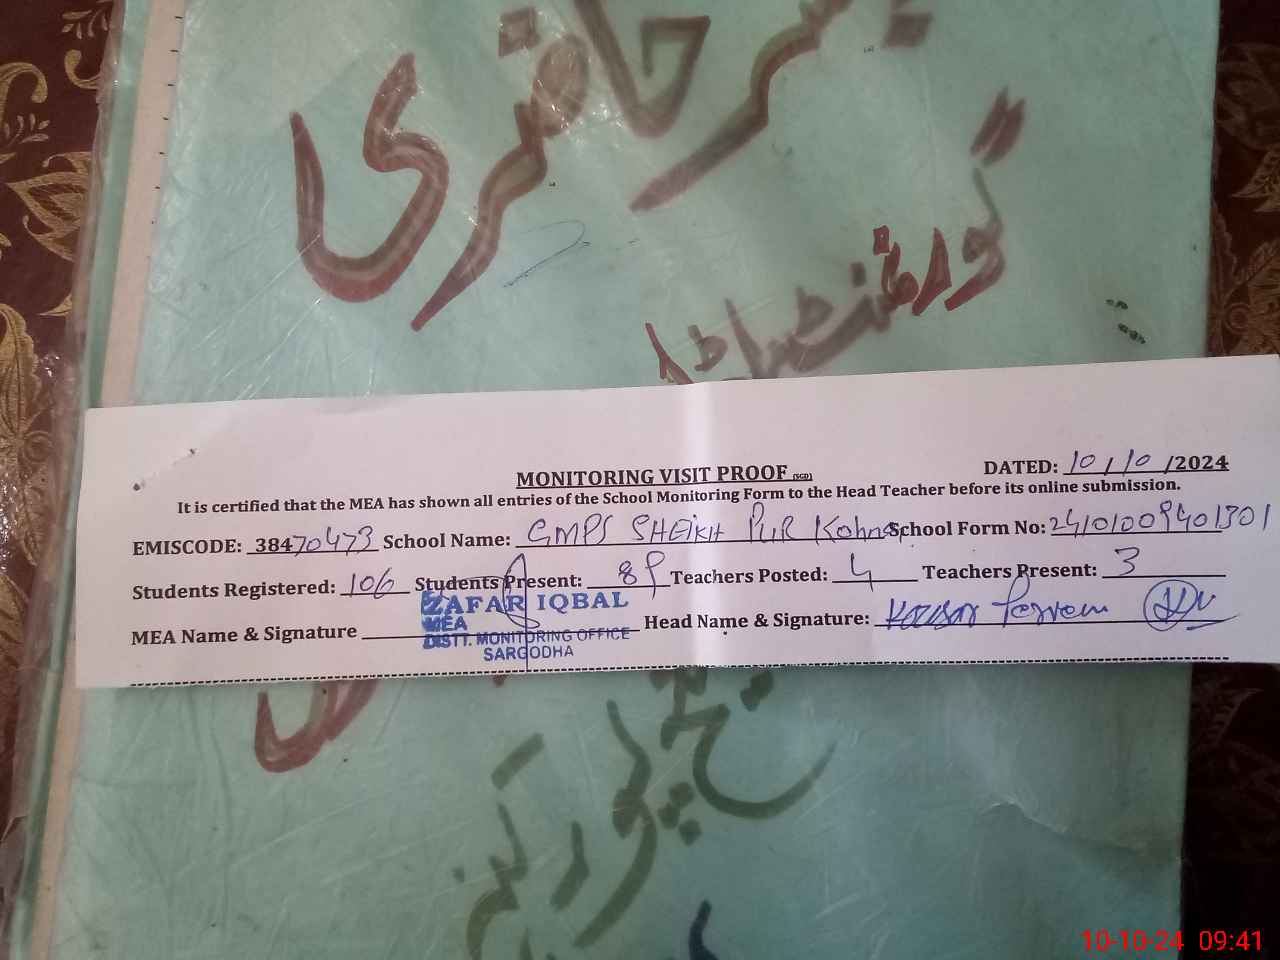 رجسٹر حاضری
گورنمنٹ
MONITORING VISIT PROOF (SGD)
DATED: 10/10/2024
It is certified that the MEA has shown all entries of the School Monitoring Form to the Head Teacher before its online submission.
EMISCODE: 38470473 School Name: GMPS SHEIKH PUR Kohna School Form No: 24101009401301
Students Registered: 106 Students Present: 89 Teachers Posted: 4 Teachers Present: 3
MEA Name & Signature Head Name & Signature: Kousar Perveen
ZAFAR IQBAL
MEA
DISTT. MONITORING OFFICE
SARGODHA
شیخ پور کہنہ
10-10-24 09:41